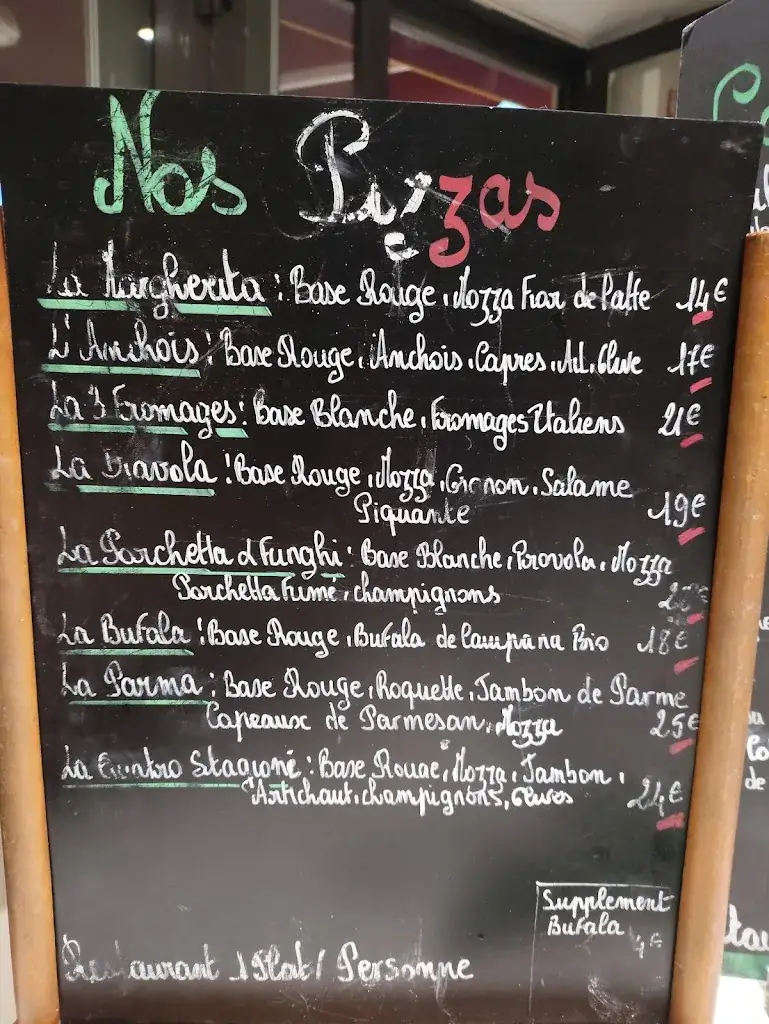 Nos Pizzas
La Margherita : Base Rouge, Mozza Fior de Latte 14€
L'Anchois : Base Rouge, Anchois, Capres, Ail, Olive 17€
La 3 Fromages : Base Blanche, Fromages Italiens 21€
La Diavola : Base Rouge, Mozza, Oignon, Salame
Piquante 19€
La Porchetta d Funghi : Base Blanche, Provola, Mozza
Porchetta Fumé, champignons
La Bufala : Base Rouge, Bufala de Campana Bio 18€
La Parma : Base Rouge, Roquette, Jambon de Parme
Copeaux de Parmesan, Mozza 25€
La Quatro Stagioné : Base Rouge, Mozza, Jambon,
Artichaut, champignons, Olives 24€
Supplement
Bufala
4€
Restaurant 1 Plat / Personne